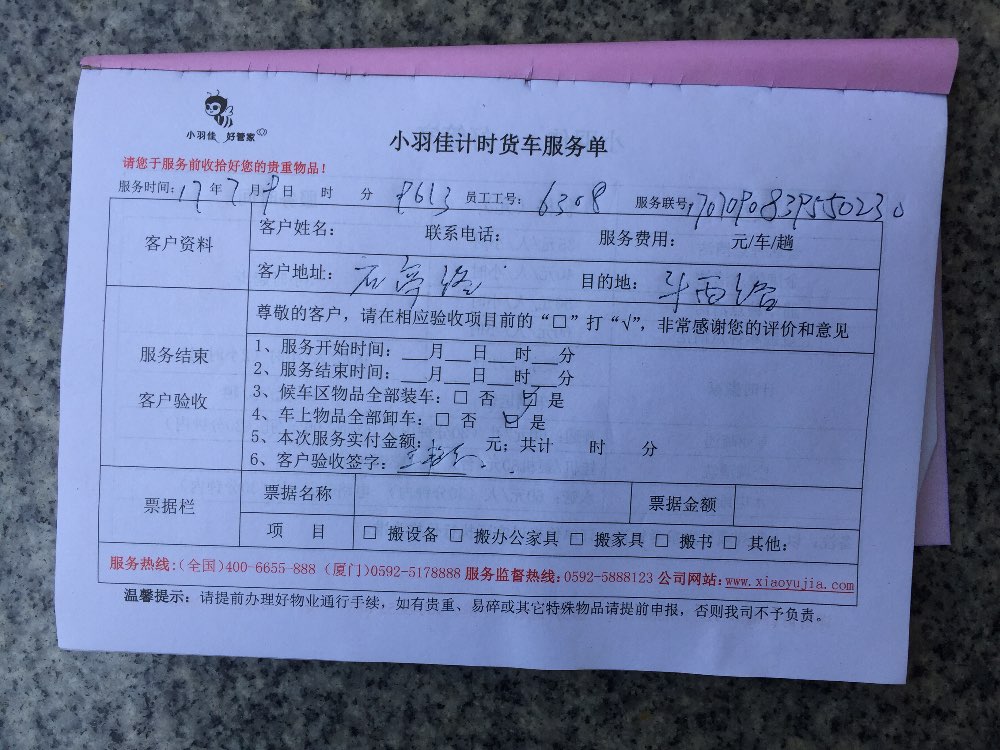 小羽佳 好管家
小羽佳计时货车服务单
请您于服务前收拾好您的贵重物品！
服务时间：17年7月9日 时 分 员工工号：6308 服务联号
客户资料
客户姓名： 联系电话： 服务费用： 元/车/趟
客户地址： 目的地：斗西路
服务结束
客户验收
尊敬的客户，请在相应验收项目前的“□”打“√”，非常感谢您的评价和意见
1、服务开始时间：___月___日___时___分
2、服务结束时间：___月___日___时___分
3、候车区物品全部装车：□ 否 ☑ 是
4、车上物品全部卸车：□ 否 ☑ 是
5、本次服务实付金额： 元；共计 时 分
6、客户验收签字：
票据栏
票据名称 票据金额
项 目 □ 搬设备 □ 搬办公家具 □ 搬家具 □ 搬书 □ 其他：
服务热线:(全国)400-6655-888 (厦门)0592-5178888 服务监督热线:0592-5888123 公司网站:www.xiaoyujia.com
温馨提示：请提前办理好物业通行手续，如有贵重、易碎或其它特殊物品请提前申报，否则我司不予负责。